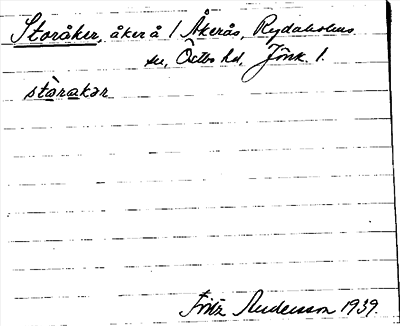 Storåker, åker å 1 Åkerås, Rydaholms
sn, Östbo hd, Jönk. l.
stòrakər
Fritz Andersson 1939.